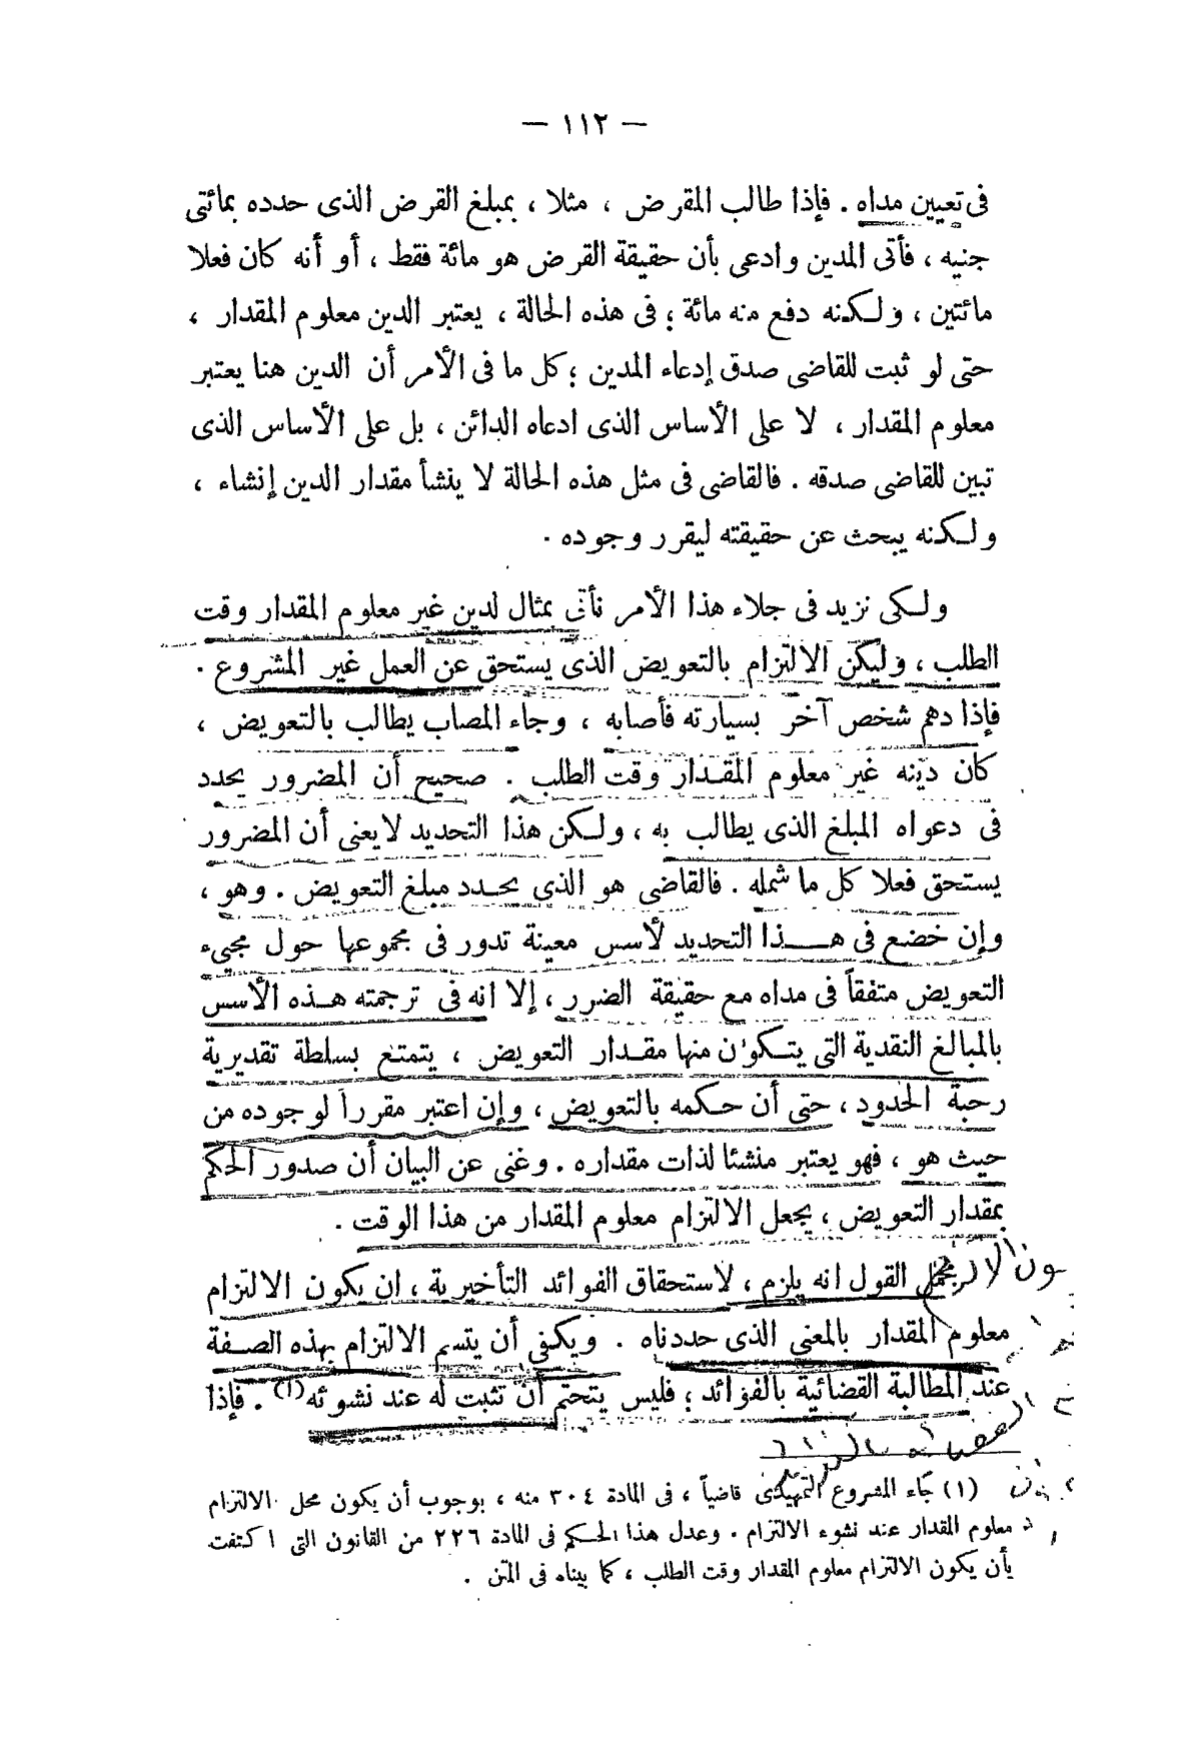 — ١١٢ —
فى تعيين مداه . فإذا طالب المقرض ، مثلا ، بمبلغ القرض الذى حدده بمائتى
جنيه ، فأتى المدين وادعى بأن حقيقة القرض هو مائة فقط ، أو أنه كان فعلا
مائتين ، ولكنه دفع منه مائة ؛ فى هذه الحالة ، يعتبر الدين معلوم المقدار ،
حتى لو ثبت للقاضى صدق إدعاء المدين ؛ كل ما فى الأمر أن الدين هنا يعتبر
معلوم المقدار ، لا على الأساس الذى ادعاه الدائن ، بل على الأساس الذى
تبين للقاضى صدقه . فالقاضى فى مثل هذه الحالة لا ينشأ مقدار الدين إنشاء ،
ولكنه يبحث عن حقيقته ليقرر وجوده .
ولكى نزيد فى جلاء هذا الأمر نأتى بمثال لدين غير معلوم المقدار وقت
الطلب ، وليكن الالتزام بالتعويض الذى يستحق عن العمل غير المشروع .
فإذا دهم شخص آخر بسيارته فأصابه ، وجاء المصاب يطالب بالتعويض ،
كان دينه غير معلوم المقدار وقت الطلب . صحيح أن المضرور يحدد
فى دعواه المبلغ الذى يطالب به ، ولكن هذا التحديد لايعنى أن المضرور
يستحق فعلا كل ما شمله . فالقاضى هو الذى يحدد مبلغ التعويض . وهو ،
وإن خضع فى هذا التحديد لأسس معينة تدور فى مجموعها حول مجىء
التعويض متفقاً فى مداه مع حقيقة الضرر ، إلا انه فى ترجمته هذه الأسس
بالمبالغ النقدية التى يتكون منها مقدار التعويض ، يتمتع بسلطة تقديرية
رحبة الحدود ، حتى أن حكمه بالتعويض ، وإن اعتبر مقرراً لوجوده من
حيث هو ، فهو يعتبر منشئا لذات مقداره . وغنى عن البيان أن صدور الحكم
بمقدار التعويض ، يجعل الالتزام معلوم المقدار من هذا الوقت .
مجمل القول انه يلزم ، لاستحقاق الفوائد التأخيرية ، ان يكون الالتزام
معلوم المقدار بالمعنى الذى حددناه . ويكفى أن يتسم الالتزام بهذه الصفة
عند المطالبة القضائية بالفوائد ؛ فليس يتحتم أن تثبت له عند نشوئه (١) . فإذا
(١) جاء المشروع التمهيدى قاضياً ، فى المادة ٣٠٤ منه ، بوجوب أن يكون محل الالتزام
معلوم المقدار عند نشوء الالتزام . وعدل هذا الحكم فى المادة ٢٢٦ من القانون التى اكتفت
بأن يكون الالتزام معلوم المقدار وقت الطلب ، كما بيناه فى المتن .